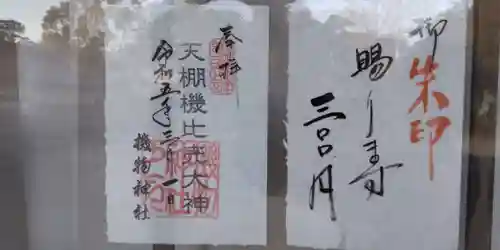 御朱印
賜ります
三百円
奉拝
天棚機比売大神
令和五年三月一日
機物神社